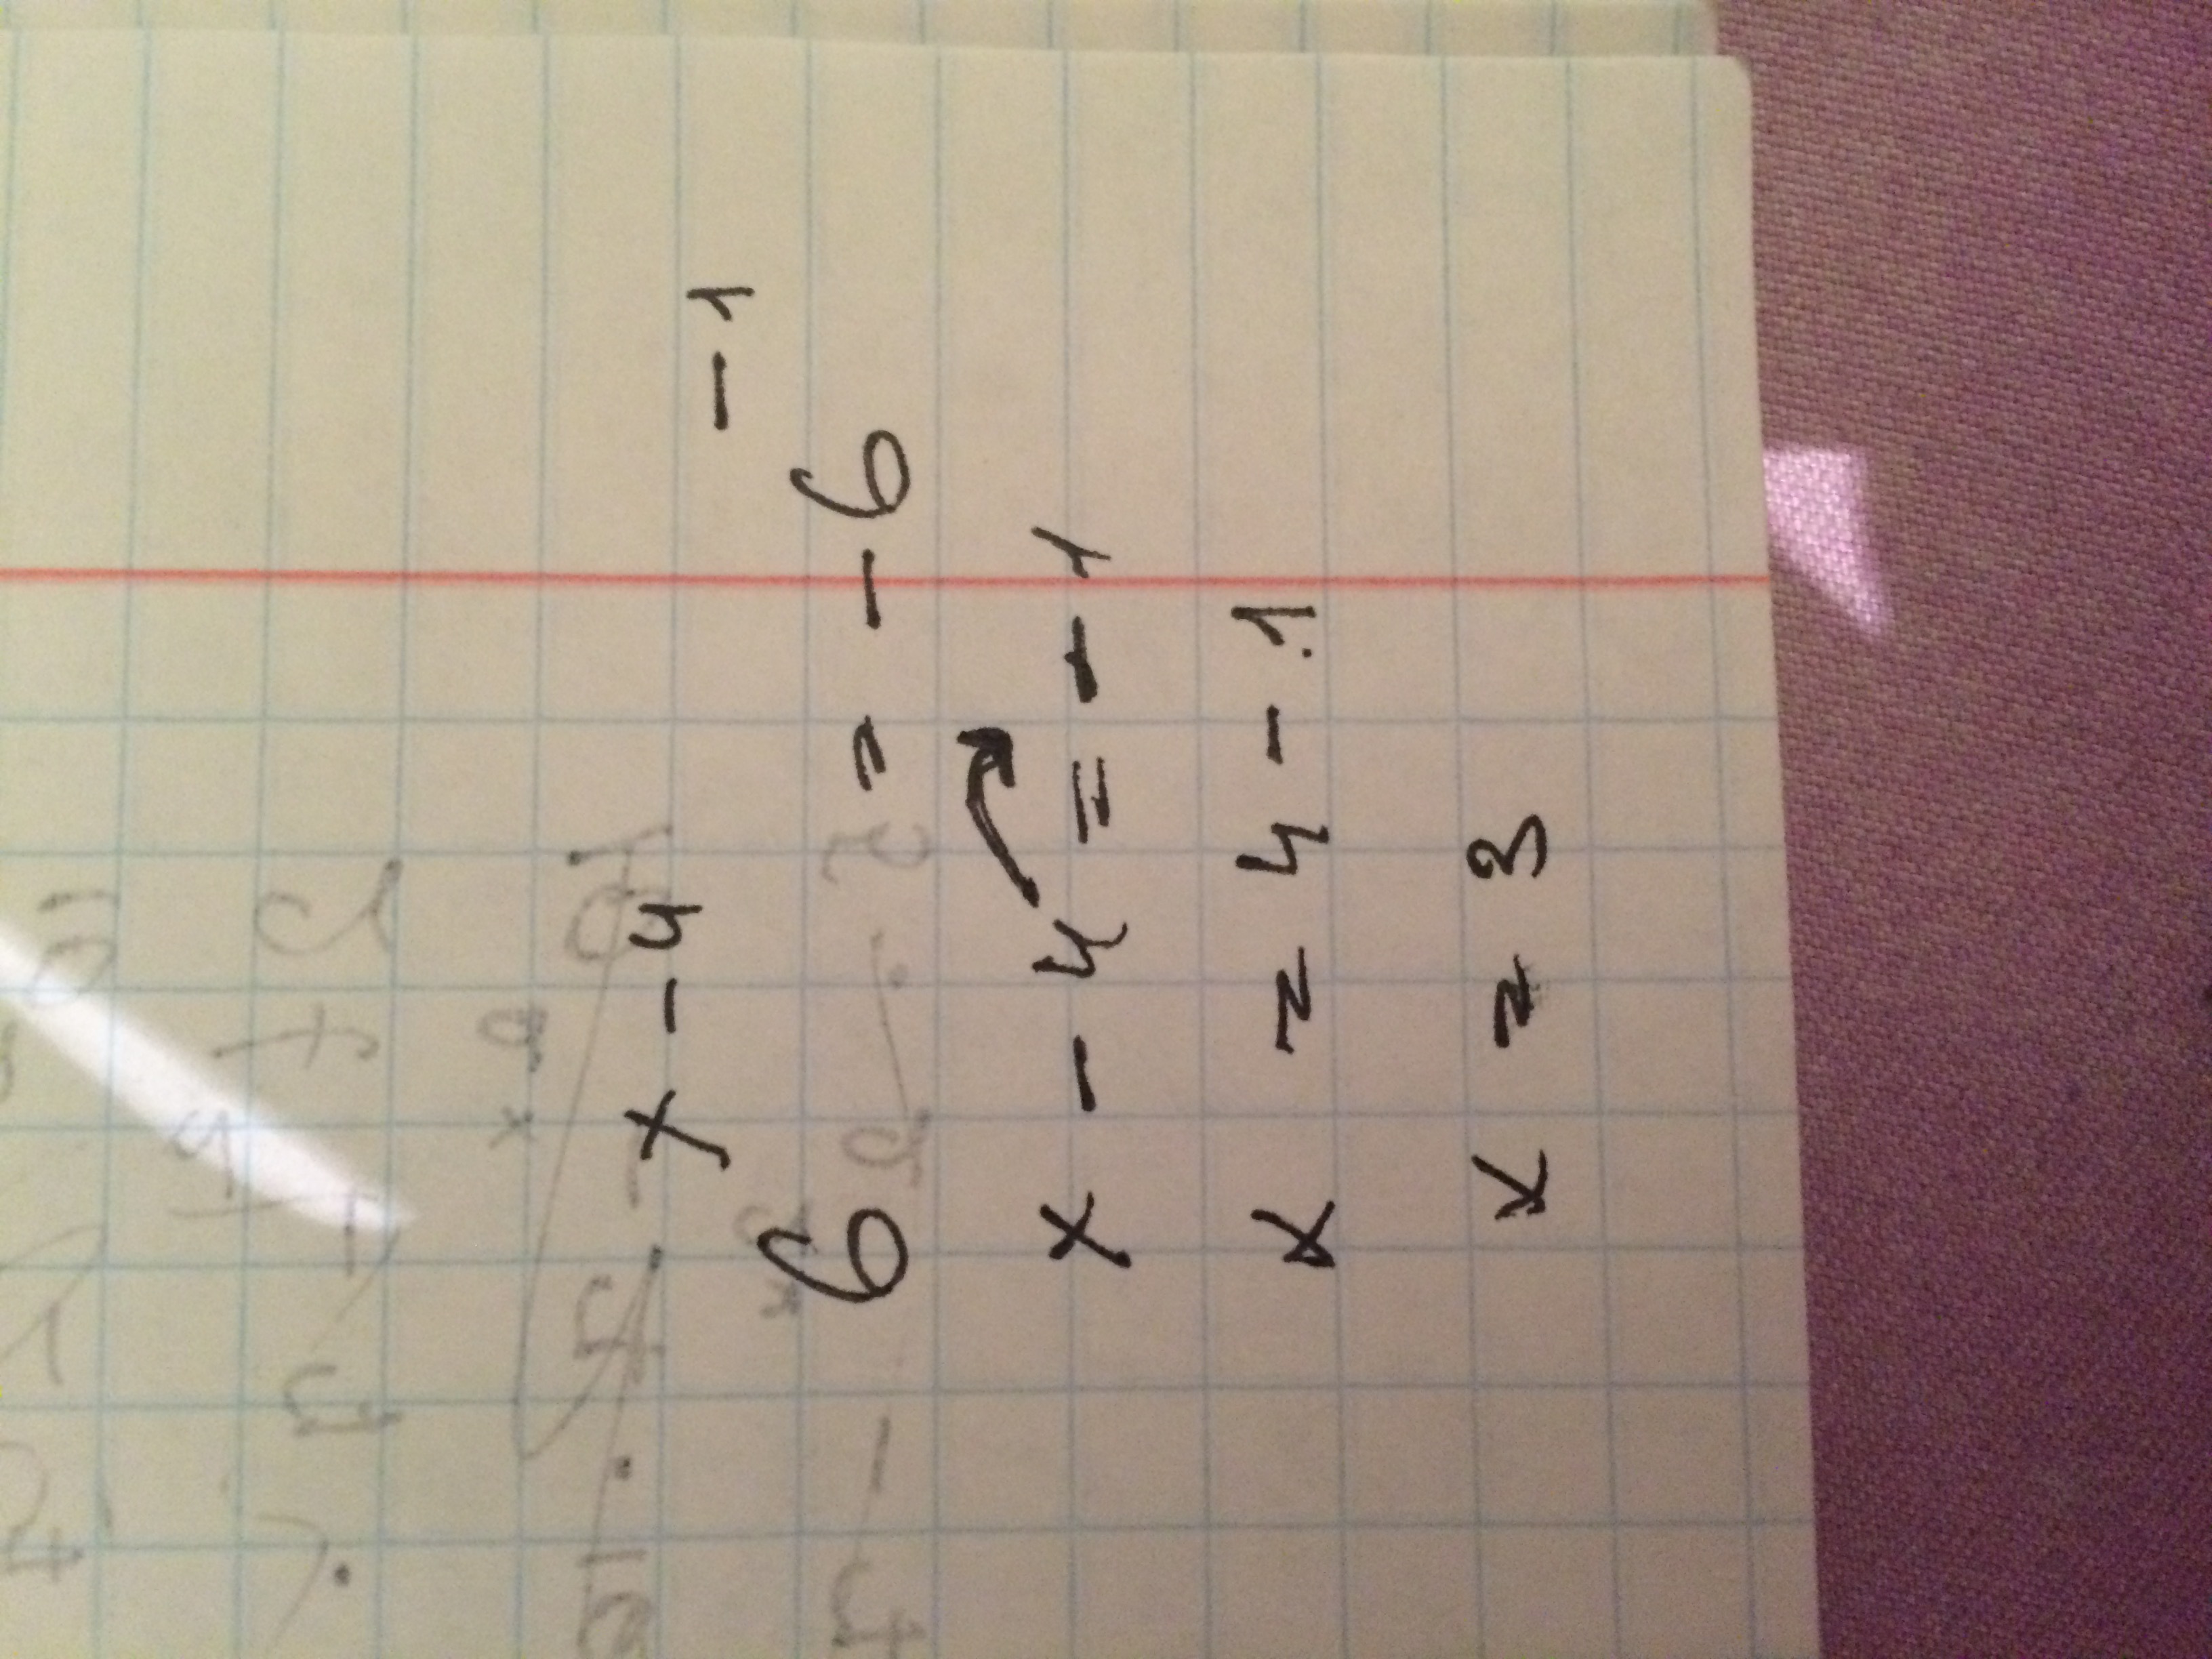 6^{x-4} = -6^{-1}
x - 4 = -1
x = 4 - 1
x = 3